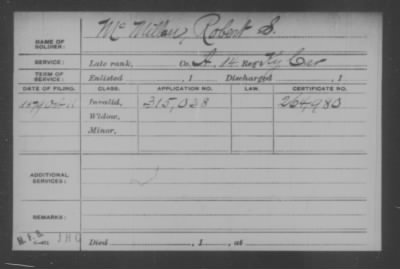 NAME OF SOLDIER: McMillan, Robert S.
SERVICE: Late rank, Co. A. 14 Reg't Ky Cav
TERM OF SERVICE: Enlisted , 1 Discharged , 1
DATE OF FILING. CLASS. APPLICATION NO. LAW. CERTIFICATE NO.
1879 Invalid, 315,028 264,980
Widow,
Minor,
ADDITIONAL SERVICES:
REMARKS:
Died , 1 , at